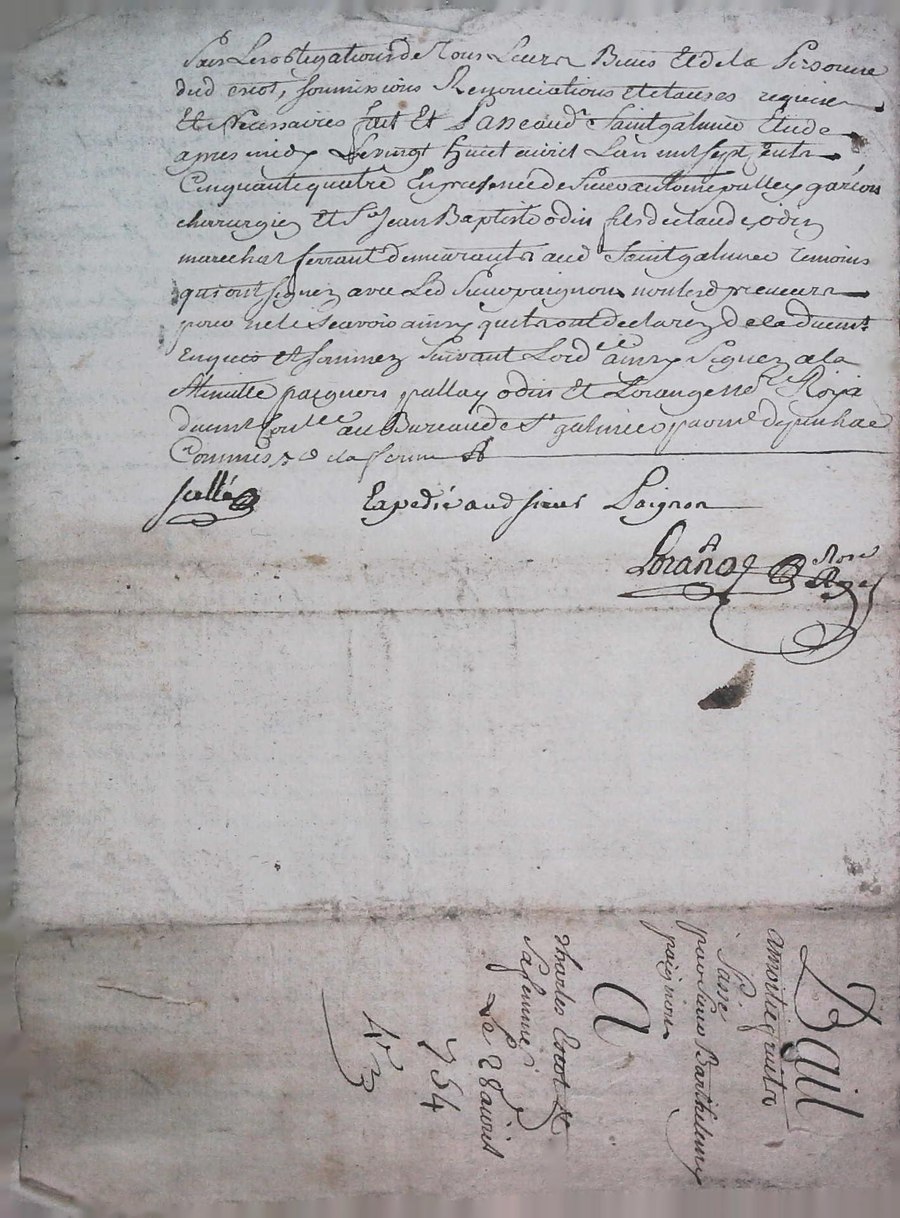 Sous Les obligations de Tous Leurs Biens Et de la Personne
dud Crot, soumissions Renonciations Et clauses requises
Et Necessaires fait Et Passé aud. Saint galmier Etude
apres midy Le vingt huict avril L'an mil sept Cents
Cinquante quatre En presence de Sieur antoine pallay garçon
chirurgien Et Sr. Jean Baptiste odin fils de claude odin
marechal ferrant demeurants aud Saint galmier temoins
qui ont signez avec Led Sieur paignon non Led preneurs
pour ne le Scavoir ainsy qu'ils ont declarez de ce duemt
Enquis Et sommez Suivant Lord.ce ainsy Signez a la
Minitte paignon pallay odin Et Lorange nre. Royal
duemt Contlé au Bureau de St galmier par mr
Commis de la ferme
scellé Expedié aud sieur Paignon
Lorange Nore
Royal
Bail
a moitié fruits
Passé
par Sieur Barthelemy
paignon
A
Charles Crot Et
Sa femme
Le 28 avril
1754
N 3